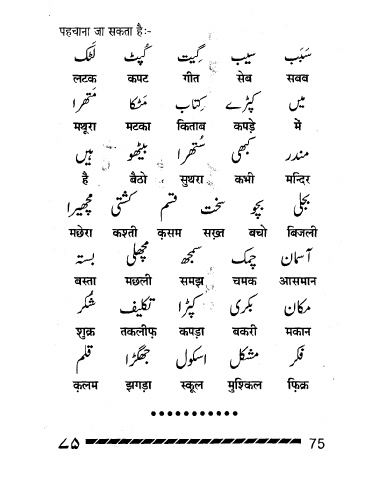 पहचाना जा सकता है:-
سَبَب سیب گیت کپٹ لٹک
लटक कपट गीत सेब सबब
میں کپڑے کِتاب مَٹکا مَتھرا
मथुरा मटका किताब कपड़े में
مندر کبھی سُتھرا بیٹھو ہیں
है बैठो सुथरा कभी मन्दिर
بجلی بچو سخت قسم کشتی مچھیرا
मछेरा कश्ती क़सम सख़्त बचो बिजली
آسمان چمک سمجھ مچھلی بستہ
बस्ता मछली समझ चमक आसमान
مکان بکری کپڑا تکلیف شُکر
शुक्र तकलीफ़ कपड़ा बकरी मकान
فکر مشکل اسکول جھگڑا قلم
क़लम झगड़ा स्कूल मुश्किल फ़िक्र
۷۵ 75